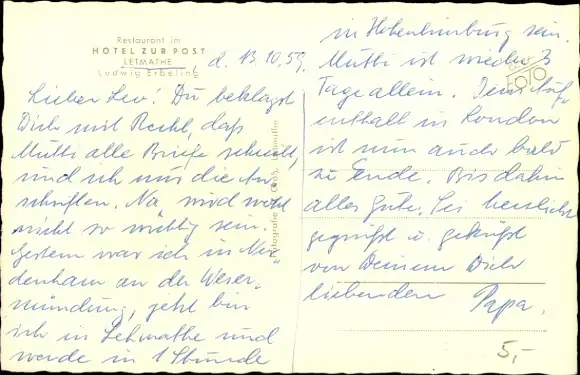 Restaurant im
HOTEL ZUR POST
LETMATHE
Ludwig Erbeling
, d. 13.10.59.
Lieber Leo! Du beklagst
Dich mit Recht, daß
Mutti alle Briefe schreibt,
und ich nur die An-
schriften. Na wird wohl
nicht so wichtig sein.
Gestern war ich in Nor-
denham an der Weser-
mündung, jetzt bin
ich in Letmathe und
werde in 1 Stunde
in Hohenlimburg sein.
Mutti ist wieder 3
Tage allein. Dein Auf-
enthalt in London
ist nun auch bald
zu Ende. Bis dahin
alles Gute. Sei herzlichst
gegrüßt u. geküßt
von Deinem Dich
liebenden Papa.
FOTO
5,-